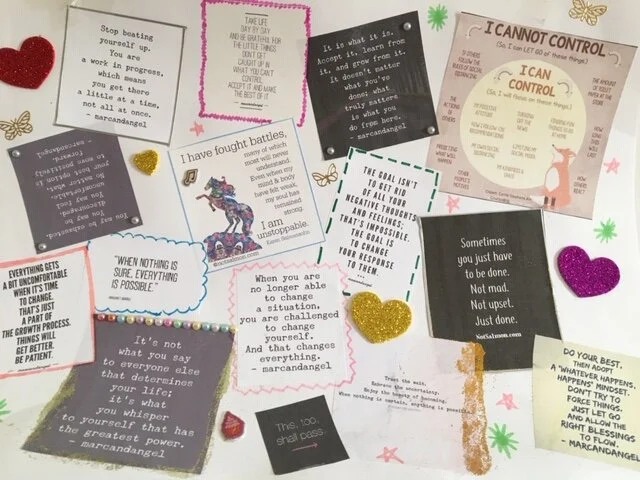 Stop beating
yourself up.
You are
a work in progress,
which means
you get there
a little at a time,
not all at once.
- marcandangel
TAKE LIFE
DAY BY DAY
AND BE GRATEFUL FOR
THE LITTLE THINGS.
DON'T GET
CAUGHT UP IN
WHAT YOU CAN'T
CONTROL.
ACCEPT IT AND MAKE
THE BEST OF IT.
- marcandangel
It is what it is.
Accept it, learn from
it, and grow from it.
It doesn't matter
what you've
done; what
truly matters
is what you
do from here.
- marcandangel
I CANNOT CONTROL
(So, I can LET GO of these things.)
IF OTHERS
FOLLOW THE
RULES OF SOCIAL
DISTANCING
THE AMOUNT
OF TOILET
PAPER AT THE
STORE
I CAN
CONTROL
(So, I will focus on these things.)
MY POSITIVE
ATTITUDE
TURNING
OFF THE
NEWS
HOW I FOLLOW CDC
RECOMMENDATIONS
MY OWN SOCIAL
DISTANCING
LIMITING MY
SOCIAL MEDIA
THE
ACTIONS OF
OTHERS
PREDICTING
WHAT WILL
HAPPEN
OTHER
PEOPLE'S
MOTIVES
HOW
LONG
THIS WILL
LAST
HOW
OTHERS
REACT
You may be exhausted.
You may be
discouraged.
You may be
uncomfortable.
But
your best option
is to keep
moving
forward.
- marcandangel
I have fought battles,
many of which
most will never
understand.
Even when my
mind & body
have felt weak,
my soul has
remained
strong.
I am
unstoppable.
Karen Salmansohn
©notsalmon.com
THE GOAL ISN'T
TO GET RID
OF ALL YOUR
NEGATIVE THOUGHTS
AND FEELINGS;
THAT'S IMPOSSIBLE.
THE GOAL IS
TO CHANGE
YOUR RESPONSE
TO THEM.
- marcandangel
Sometimes
you just have
to be done.
Not mad.
Not upset.
Just done.
NotSalmon.com
EVERYTHING GETS
A BIT UNCOMFORTABLE
WHEN IT'S TIME
TO CHANGE.
THAT'S JUST
A PART OF
THE GROWTH PROCESS.
THINGS WILL
GET BETTER.
BE PATIENT.
- marcandangel
"WHEN NOTHING IS
SURE, EVERYTHING
IS POSSIBLE."
When you are
no longer able to
change
a situation,
you are challenged
to change
yourself.
And that changes
everything.
- marcandangel
It's not
what you say
to everyone else
that determines
your life;
it's what
you whisper
to yourself that has
the greatest power.
- marcandangel
This, too,
shall pass.
Trust the wait.
Embrace the uncertainty.
Enjoy the beauty of becoming.
When nothing is certain, anything is possible.
DO YOUR BEST.
THEN ADOPT
A 'WHATEVER HAPPENS,
HAPPENS' MINDSET.
DON'T TRY TO
FORCE THINGS.
JUST LET GO
AND ALLOW THE
RIGHT BLESSINGS
TO FLOW.
- MARCANDANGEL